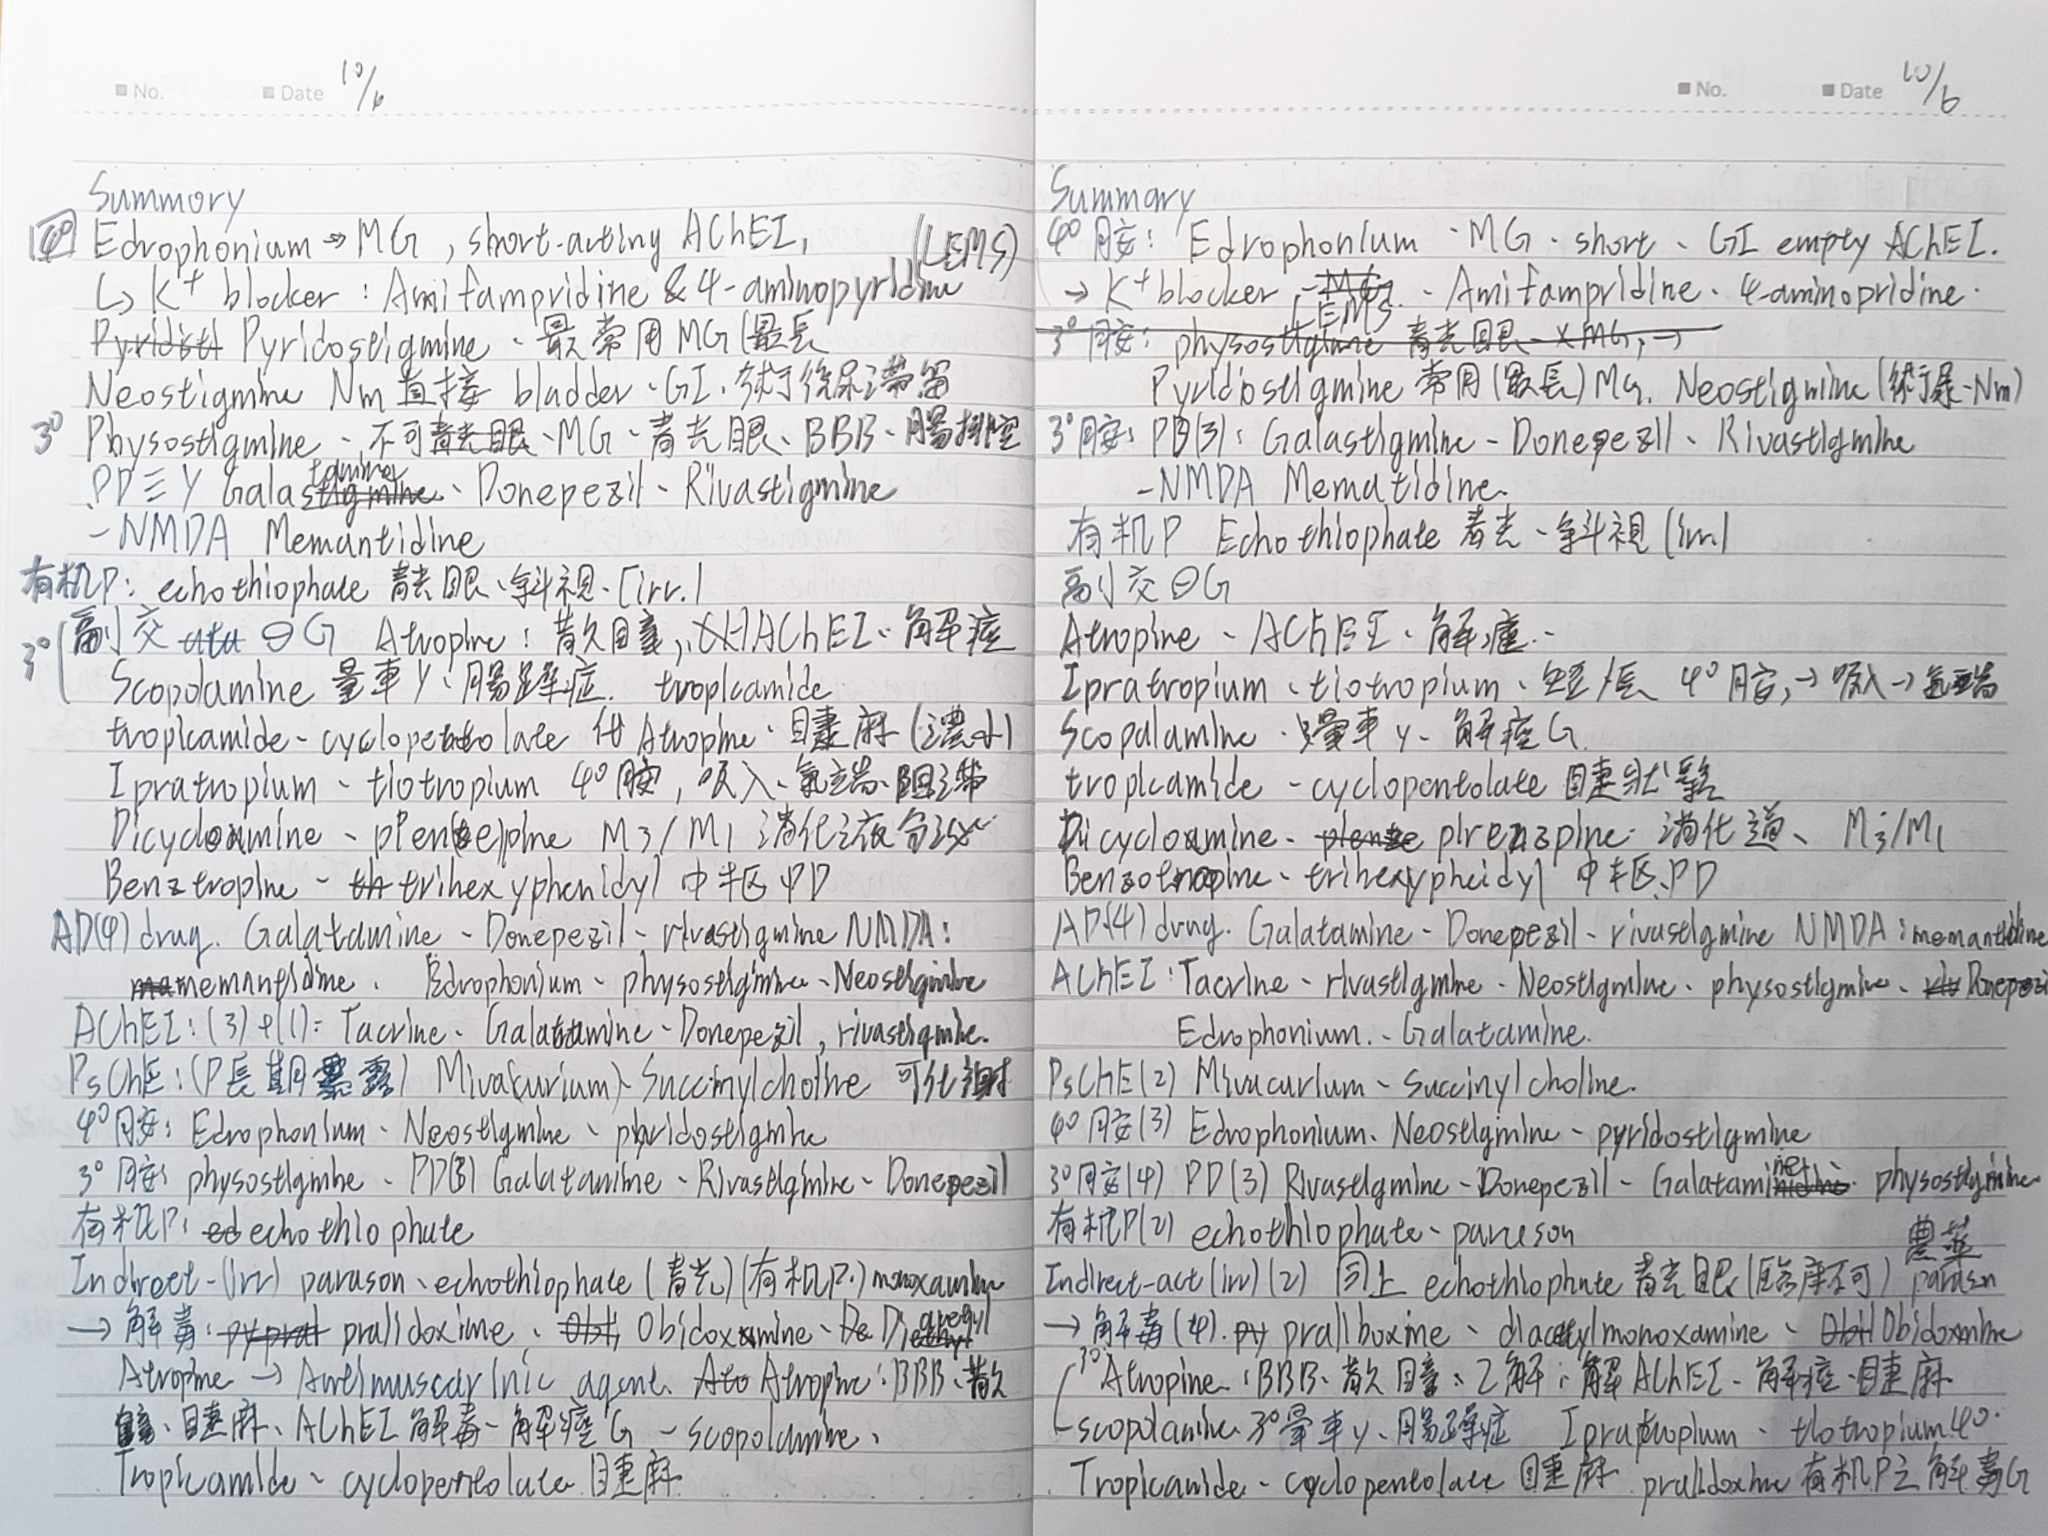 No. Date 10/6
Summory
4° Edrophonium → MG , short-acting AChEI,
(LEMS)
↳ K⁺ blocker : Amifampridine & 4-aminopyridine
Pyridosti Pyridostigmine、最常用MG (最長
Neostigmine Nm直接 bladder、GI、術後尿滯留
3° Physostigmine、不可青光眼、MG、青光眼、BBB、腸排空
PD三Y Galastigmine tamine、Donepezil、Rivastigmine
-NMDA Memantidine
有机P: echothiophate 青光眼、斜視、[irr.]
3° 副交 ⊖G Atropine : 散久目童, AChEI、解痙
Scopolamine 暈車Y、腸躁症. tropicamide
tropicamide-cyclopentolate 代 Atropine、睫麻 (濃小)
Ipratropium、tiotropium 4°胺, 吸入、氣喘、阻滯
Dicycloxamine、pien(ze)pine M3/M1 消化液分泌
Benztropine - trihexyphenidyl 中枢PD
AD(4) drug. Galatamine - Donepezil - rivastigmine NMDA:
memantidine. Edrophonium - physostigmine - Neostigmine
AChEI: (3)+(1)= Tacrine、Galatamine - Donepezil, rivastigmine.
PsChE: (P長期暴露) Mivacurium、Succinylcholine 可代謝
4°胺: Edrophonium、Neostigmine、phyridostigmine
3°胺: physostigmine - PD(3) Galatamine - Rivastigmine - Donepezil
有机P: echothiophate
Indirect-(irr) parason、echothiophate (青光) (有机P.) monoxamine
→ 解毒: pralidoxime、Obidoxamine、Diacetyl
Atropine → Antimuscarinic agent. Atropine: BBB、散久
童、睫麻、AChEI解毒-解痙G - scopolamine、
Tropicamide、cyclopentolate 睫麻
No. Date 10/6
Summary
4°胺: Edrophonium、MG、short、GI empty AChEI.
→ K⁺ blocker - MG LEMS、Amifampridine、4-aminopridine.
3°胺: physostigmine 青光眼、×MG, →
Pyridiostigmine 常用(最長) MG. Neostigmine (術後尿-Nm)
3°胺: PD(3): Galastigmine - Donepezil、Rivastigmine
-NMDA Mematidine.
有机P Echothiophate 青光、斜視 [irr]
副交⊖G
Atropine、AChEI、解痙、
Ipratropium、tiotropium、短/長 4°胺, → 吸入 → 氣喘
Scopalamine、暈車Y、解痙G
tropicamide - cyclopentolate 睫狀
Dicycloxamine、pirenzpine、消化道、M3/M1
Benzotropine、trihexypheidyl 中枢、PD
AD(4) drug. Galatamine - Donepezil - rivastigmine NMDA: memantidine
AChEI: Tacrine - rivastigmine - Neostigmine、physostigmine、Donepezil
Edrophonium、Galatamine.
PsChE(2) Mivacurium - Succinylcholine.
4°胺(3) Edrophonium、Neostigmine - pyridostigmine
3°胺(4) PD(3) Rivastigmine - Donepezil - Galatamine physostigmine
有机P(2) echothiophate - parason
農藥
Indirect-act (irr) (2) 同上 echothiophate 青光眼 (臨床不可) parason
→ 解毒(4). praliboxime、diacetylmonoxamine、Obidoxamine
3° Atropine: BBB、散久目童、乙解: 解AChEI、解痙、睫麻
scopolamine 3°暈車Y、腸躁症 Ipratroplum、tiotropium4°
Tropicamide、cyclopentolate 睫麻 pralidoxime 有机P之解毒G